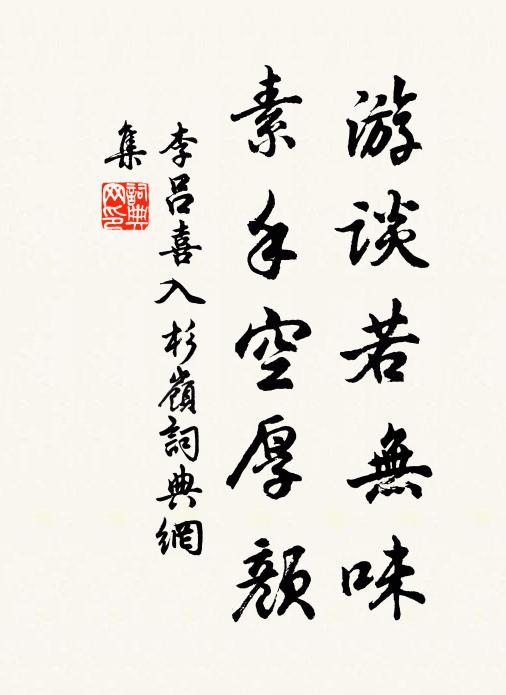 游談若無味
素手空厚顏
李呂喜入杉嶺詞典網
集
詞典
网印